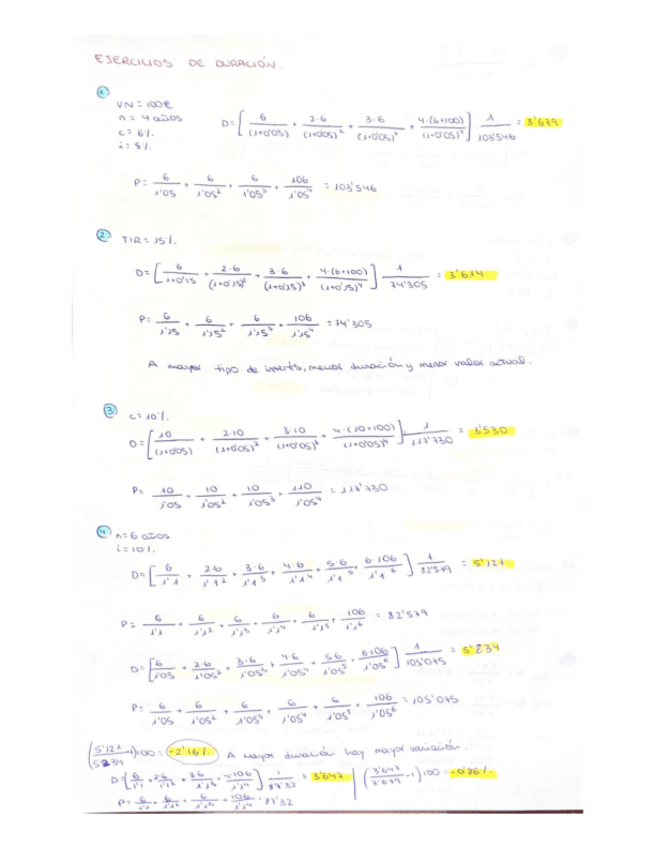 EJERCICIOS DE DURACIÓN.
1
VN = 100€
n = 4 años
c = 6%
i = 5%
D = [ 6/(1+0'05) + 2·6/(1+0'05)² + 3·6/(1+0'05)³ + 4·(6+100)/(1+0'05)⁴ ] 1/103'546 = 3'679
P = 6/1'05 + 6/1'05² + 6/1'05³ + 106/1'05⁴ = 103'546
2 TIR = 15%.
D = [ 6/1+0'15 + 2·6/(1+0'15)² + 3·6/(1+0'15)³ + 4·(6+100)/(1+0'15)⁴ ] 1/74'305 = 3'614
P = 6/1'15 + 6/1'15² + 6/1'15³ + 106/1'15⁴ = 74'305
A mayor tipo de interés, menor duración y menor valor actual.
3 c = 10%.
D = [ 10/(1+0'05) + 2·10/(1+0'05)² + 3·10/(1+0'05)³ + 4·(10+100)/(1+0'05)⁴ ] · 1/117'730 = 3'530
P = 10/1'05 + 10/1'05² + 10/1'05³ + 110/1'05⁴ = 117'730
4 n = 6 años
i = 10%.
D = [ 6/1'1 + 2·6/1'1² + 3·6/1'1³ + 4·6/1'1⁴ + 5·6/1'1⁵ + 6·106/1'1⁶ ] 1/82'579 = 5'121
P = 6/1'1 + 6/1'1² + 6/1'1³ + 6/1'1⁴ + 6/1'1⁵ + 106/1'1⁶ = 82'579
D = [ 6/1'05 + 2·6/1'05² + 3·6/1'05³ + 4·6/1'05⁴ + 5·6/1'05⁵ + 6·106/1'05⁶ ] 1/105'075 = 5'234
P = 6/1'05 + 6/1'05² + 6/1'05³ + 6/1'05⁴ + 6/1'05⁵ + 106/1'05⁶ = 105'075
(5'121/5'234 - 1) 100 = -2'16% A mayor duración hay mayor variación.
D = [ 6/1'1 + 2·6/1'1² + 3·6/1'1³ + 4·106/1'1⁴ ] 1/87'32 = 3'647 | (3'647/3'679 - 1) 100 = -0'86%.
P = 6/1'1 + 6/1'1² + 6/1'1³ + 106/1'1⁴ = 87'32